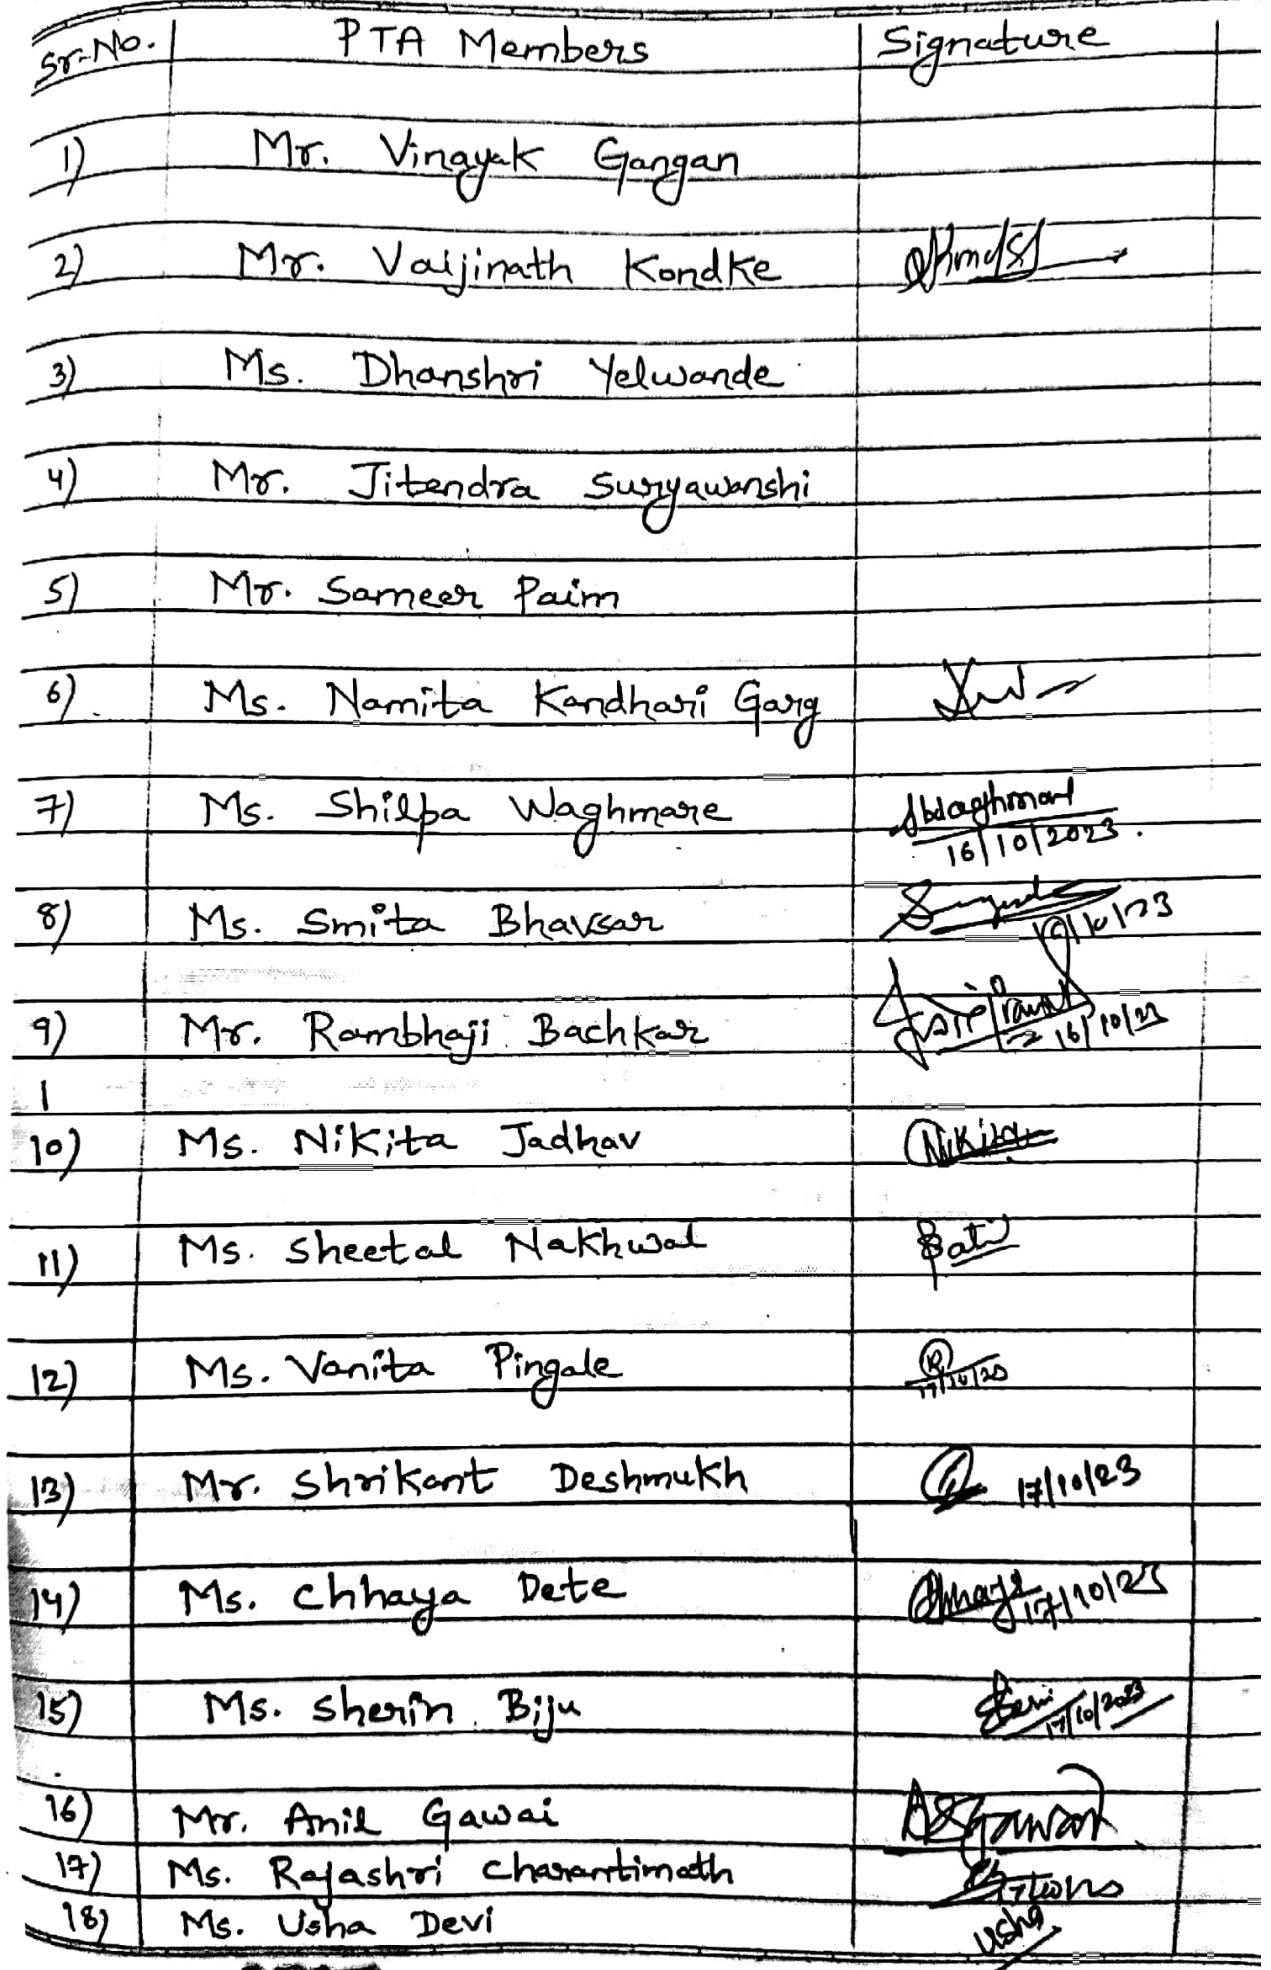 Sr.No. PTA Members Signature
1) Mr. Vinayak Gangan
2) Mr. Vaijinath Kondke
3) Ms. Dhanshri Yelwande
4) Mr. Jitendra Suryawanshi
5) Mr. Sameer Paim
6) Ms. Namita Kandhari Garg
7) Ms. Shilpa Waghmare
16/10/2023.
8) Ms. Smita Bhavsar
9) Mr. Rambhaji Bachkar 16/10/23
10) Ms. Nikita Jadhav Nikita
11) Ms. Sheetal Nakhwal
12) Ms. Vanita Pingale
13) Mr. Shrikant Deshmukh 17/10/23
14) Ms. Chhaya Dete 17/10/23
15) Ms. Sherin Biju 17/10/2023
16) Mr. Anil Gawai
17) Ms. Rajashri Charantimath
18) Ms. Usha Devi Usha